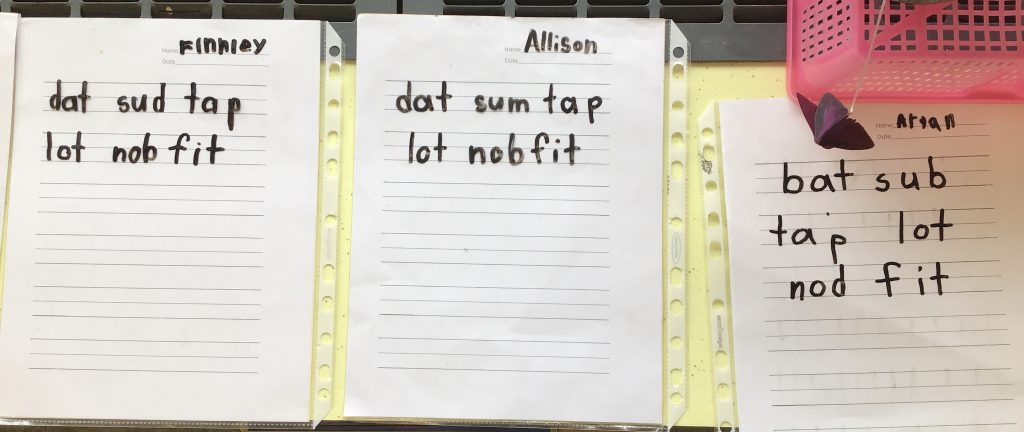 Name Finnley
Date
dat sud tap
lot nob fit
Name Allison
Date
dat sum tap
lot nob fit
Name Aryan
Date
bat sub
tap lot
nod fit